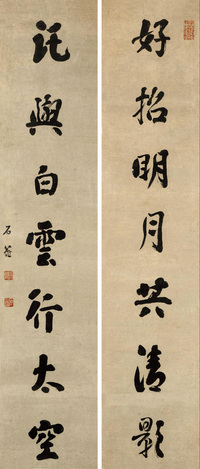 好招明月共清影
託與白雲行太空
石菴